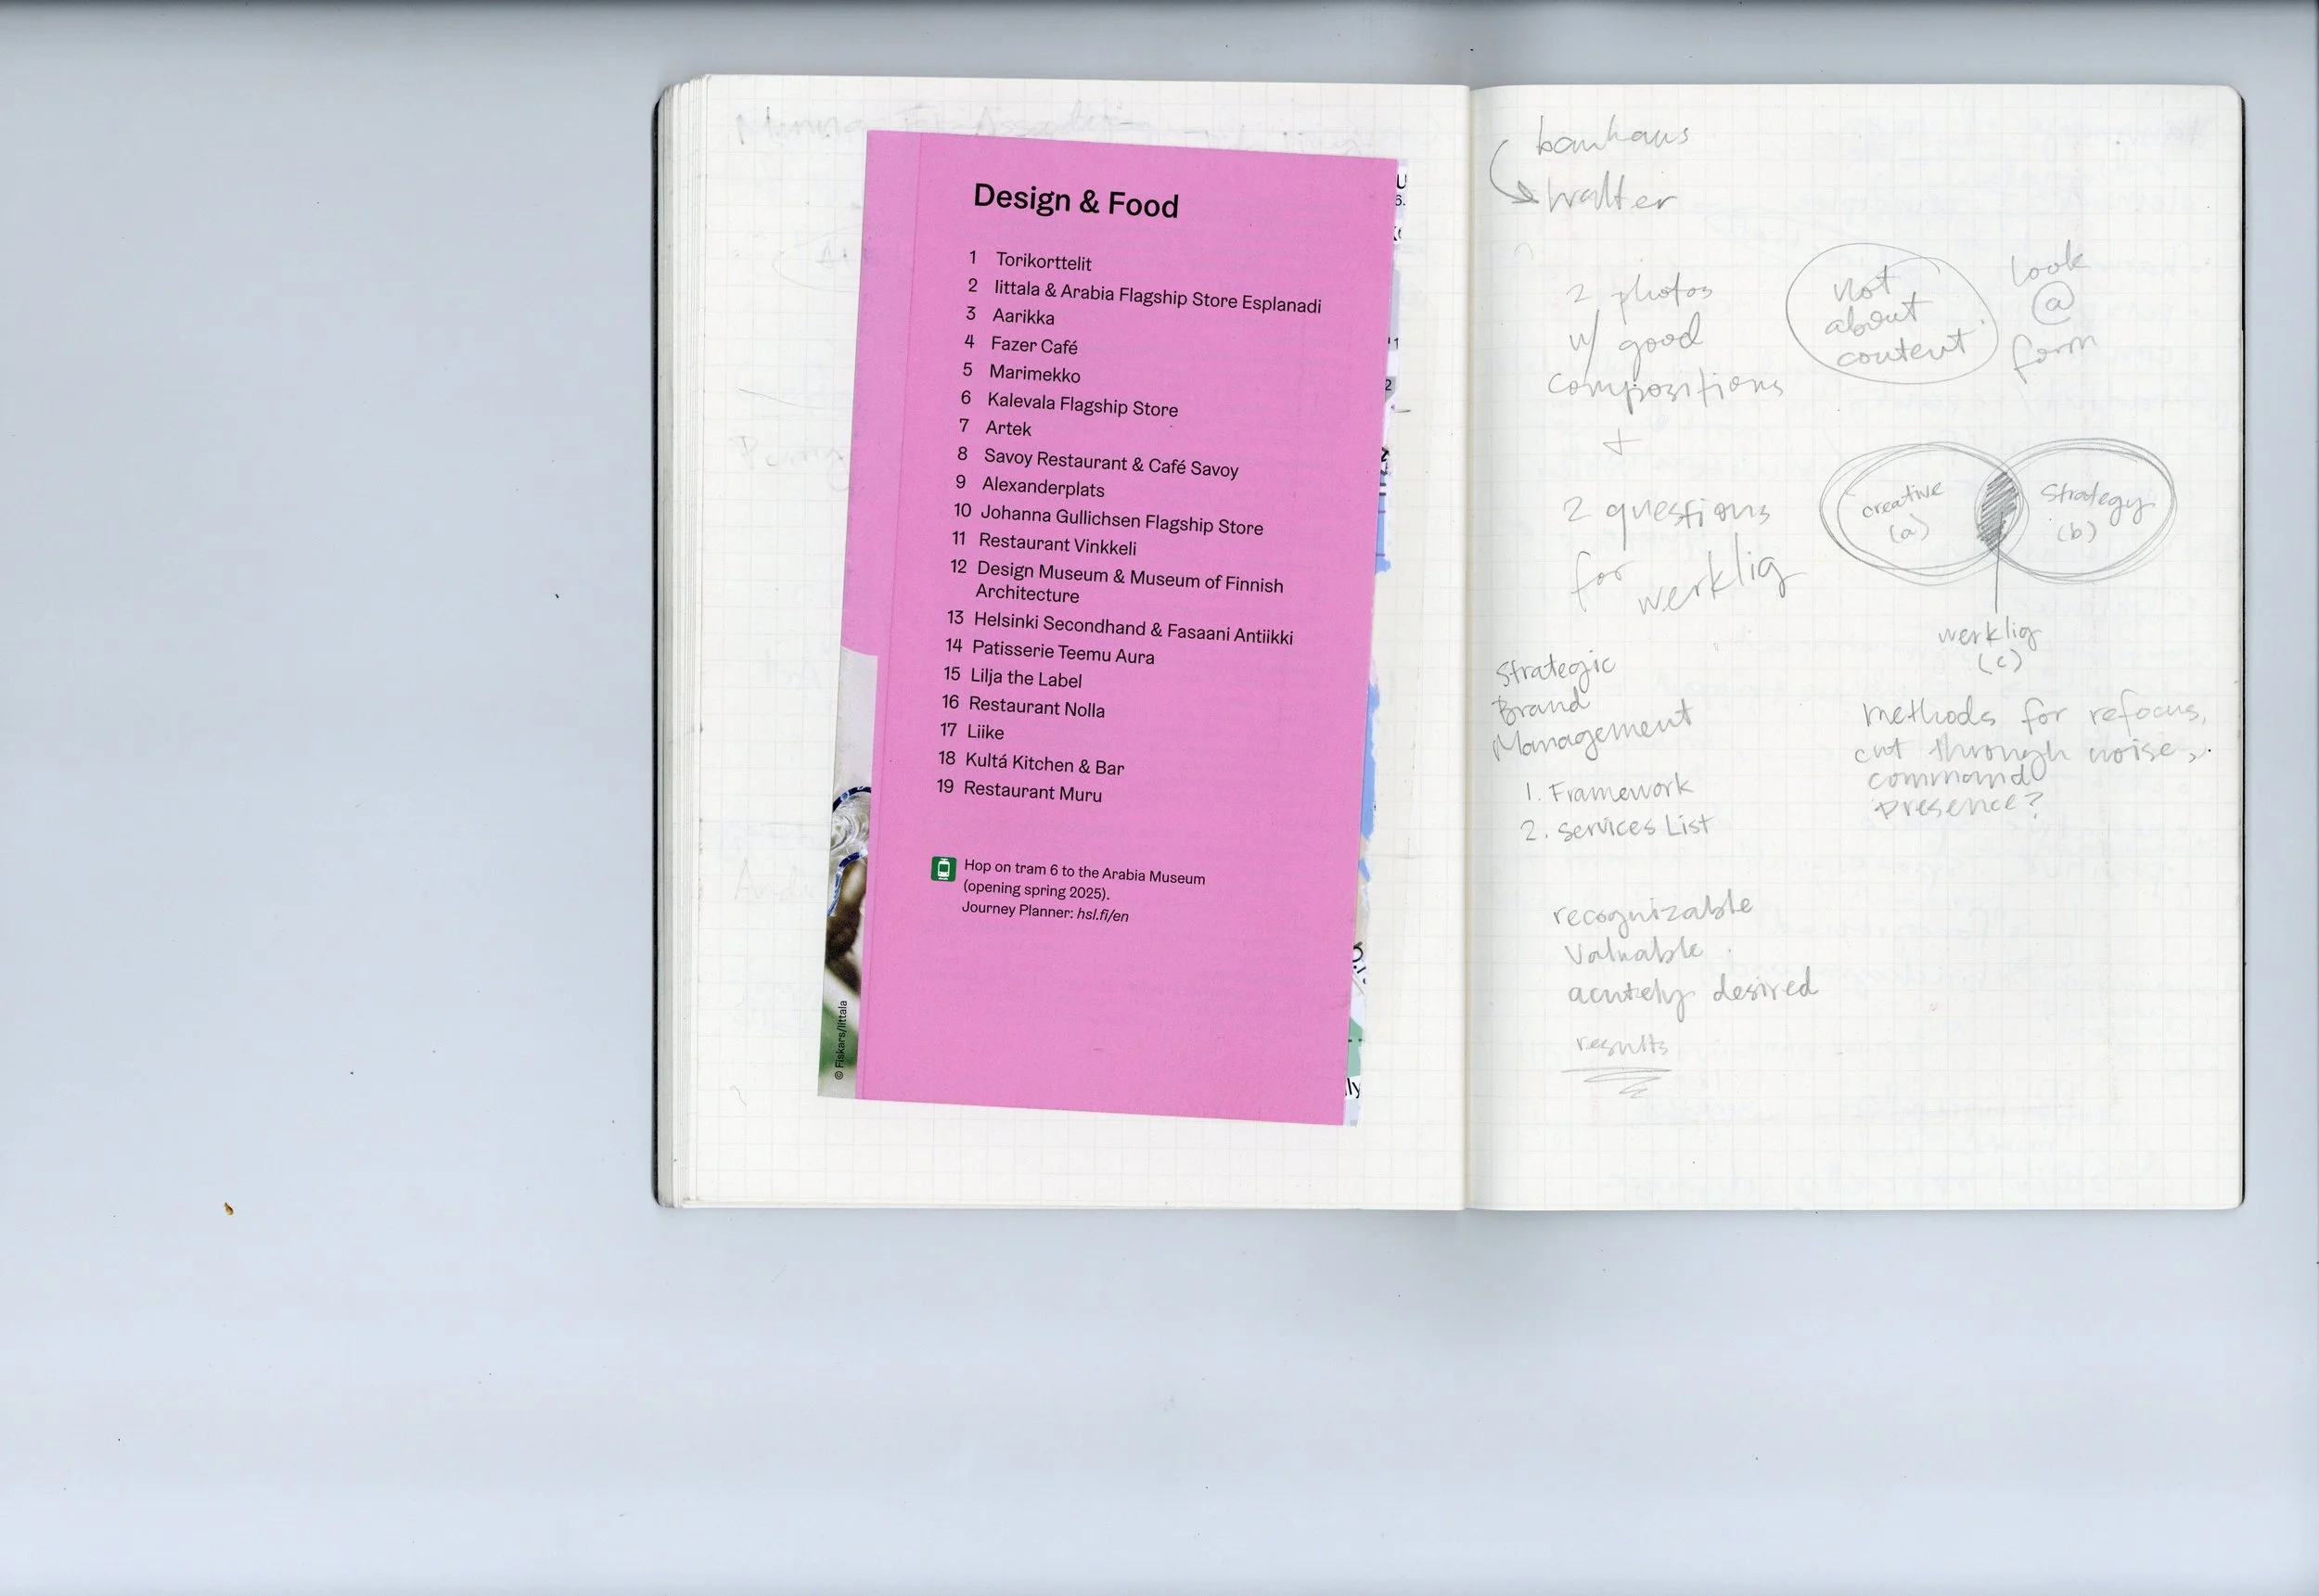 Design & Food
1 Torikorttelit
2 Iittala & Arabia Flagship Store Esplanadi
3 Aarikka
4 Fazer Café
5 Marimekko
6 Kalevala Flagship Store
7 Artek
8 Savoy Restaurant & Café Savoy
9 Alexanderplats
10 Johanna Gullichsen Flagship Store
11 Restaurant Vinkkeli
12 Design Museum & Museum of Finnish
Architecture
13 Helsinki Secondhand & Fasaani Antiikki
14 Patisserie Teemu Aura
15 Lilja the Label
16 Restaurant Nolla
17 Liike
18 Kultá Kitchen & Bar
19 Restaurant Muru
Hop on tram 6 to the Arabia Museum
(opening spring 2025).
Journey Planner: hsl.fi/en
© Fiskars/Iittala
bauhaus
walter
2 photos
w/ good
compositions
+
2 questions
for
werklig
not
about
content
look
@
form
creative
(a)
Strategy
(b)
werklig
(c)
Strategic
Brand
Management
1. Framework
2. Services List
methods for refocus,
cut through noise,
command
presence?
recognizable
Valuable
acutely desired
results